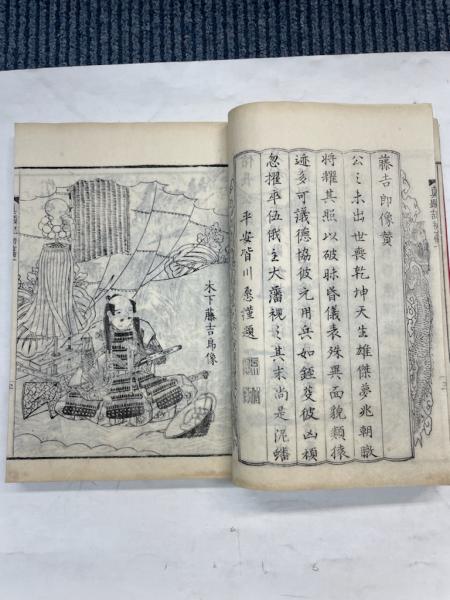 藤吉郎像賛
公之未出世喪乾坤天生雄傑夢兆朝暾
将耀其照以破昧昏儀表殊異面貌類猿
迹多可議德協彼元用兵如錘芟彼凶頑
忽擢卒伍俄主大藩視之其末尚是泥蟠
平安皆川愿謹題
木下藤吉郎像